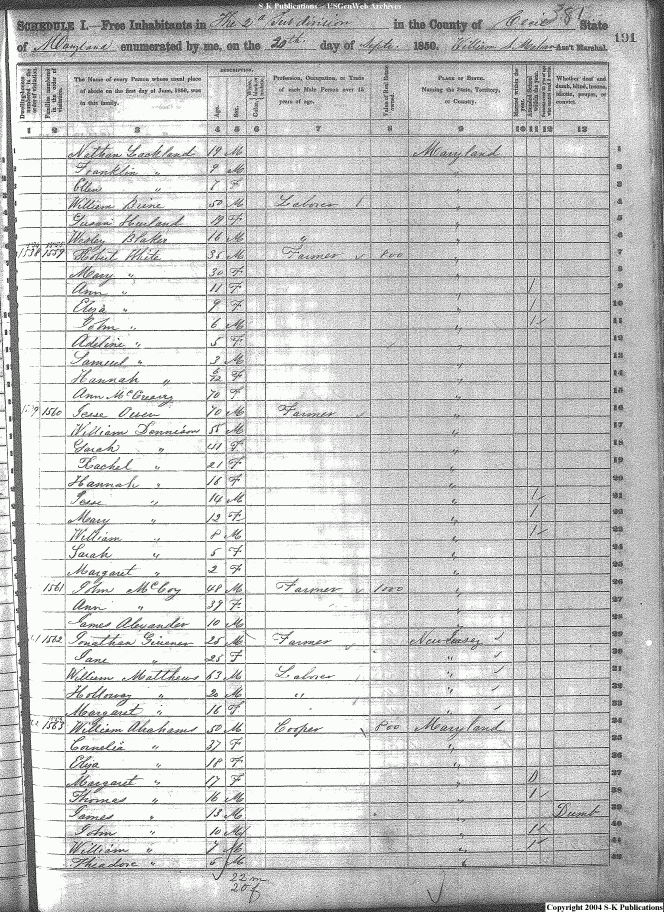 S-K Publications - USGenWeb Archives
SCHEDULE I.—Free Inhabitants in The 2d Subdivision in the County of Cecil State 381
of Maryland enumerated by me, on the 20th day of Septr. 1850. William S. Ass't Marshal. 191
Dwelling-houses numbered in the order of visitation.
Families numbered in the order of visitation.
The Name of every Person whose usual place of abode on the first day of June, 1850, was in this family.
DESCRIPTION.
Age.
Sex.
Color, White, black, or mulatto.
Profession, Occupation, or Trade of each Male Person over 15 years of age.
Value of Real Estate owned.
PLACE OF BIRTH. Naming the State, Territory, or Country.
Married within the year.
Attended School within the year.
Whether deaf and dumb, blind, insane, idiotic, pauper, or convict.
1 2 3 4 5 6 7 8 9 10 11 12 13
1 Nathan Lockland 19 M Maryland 1
2 Franklin " 9 M " 2
3 Ellen " 7 F " 3
4 William Birne 50 M Laborer " 4
5 Susan Hurland 19 F " 5
6 Wesley Blaker 16 M " " 6
7 1538 1559 Robert White 35 M Farmer 800 " 7
8 Mary " 30 F " 8
9 Ann " 11 F " 1 9
10 Eliza " 9 F " 1 10
11 John " 6 M " 1 11
12 Adeline " 5 F " 12
13 Samuel " 3 M " 13
14 Hannah " 6/12 F " 14
15 Ann McCreary 70 F " 15
16 1560 Jesse Owen 70 M Farmer " 16
17 William Dennison 55 M " 17
18 Sarah " 41 F " 18
19 Rachel " 21 F " 19
20 Hannah " 16 F " 20
21 Jesse " 14 M " 1 21
22 Mary " 12 F " 1 22
23 William " 8 M " 1 23
24 Sarah " 5 F " 24
25 Margaret " 2 F " 25
26 1561 John McCoy 48 M Farmer 1000 " 26
27 Ann " 39 F " 27
28 James Alexander 10 M " 28
29 1562 Jonathan 25 M Farmer New Jersey 29
30 Jane " 25 F " 30
31 William Matthews 63 M Laborer " 31
32 Holloway " 20 M " " 32
33 Margaret " 16 F " 33
34 1563 William Abrahams 50 M Cooper 800 Maryland 34
35 Cornelia " 37 F " 35
36 Eliza " 18 F " 36
37 Margaret " 17 F " 37
38 Thomas " 16 M " 1 38
39 James " 13 M " Dumb 39
40 John " 10 M " 1 40
41 William " 7 M " 1 41
42 Theadore " 5 M " 42
22 m
20 f
Copyright 2004 S-K Publications